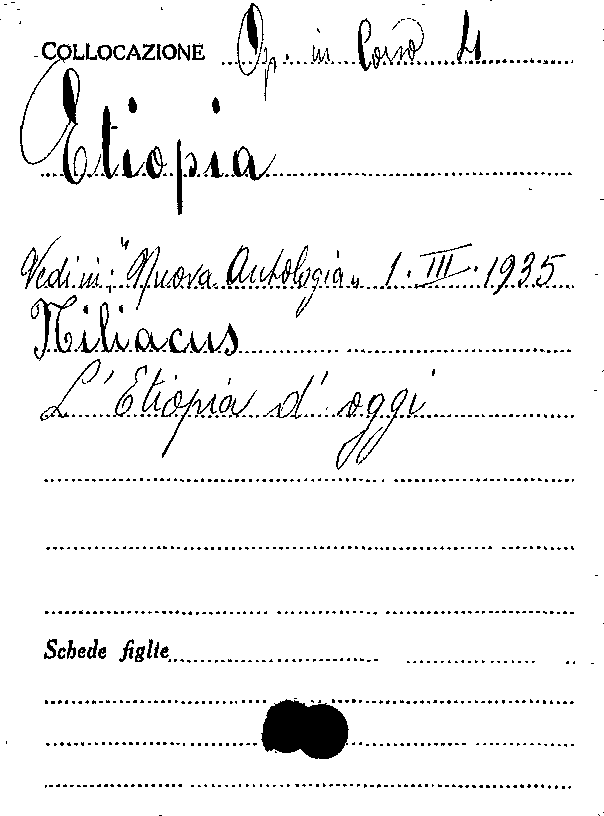 COLLOCAZIONE Op. in Corso 4
Etiopia
Vedi in: "Nuova Antologia„ 1. III. 1935
Niliacus
L'Etiopia d'oggi
Schede figlie